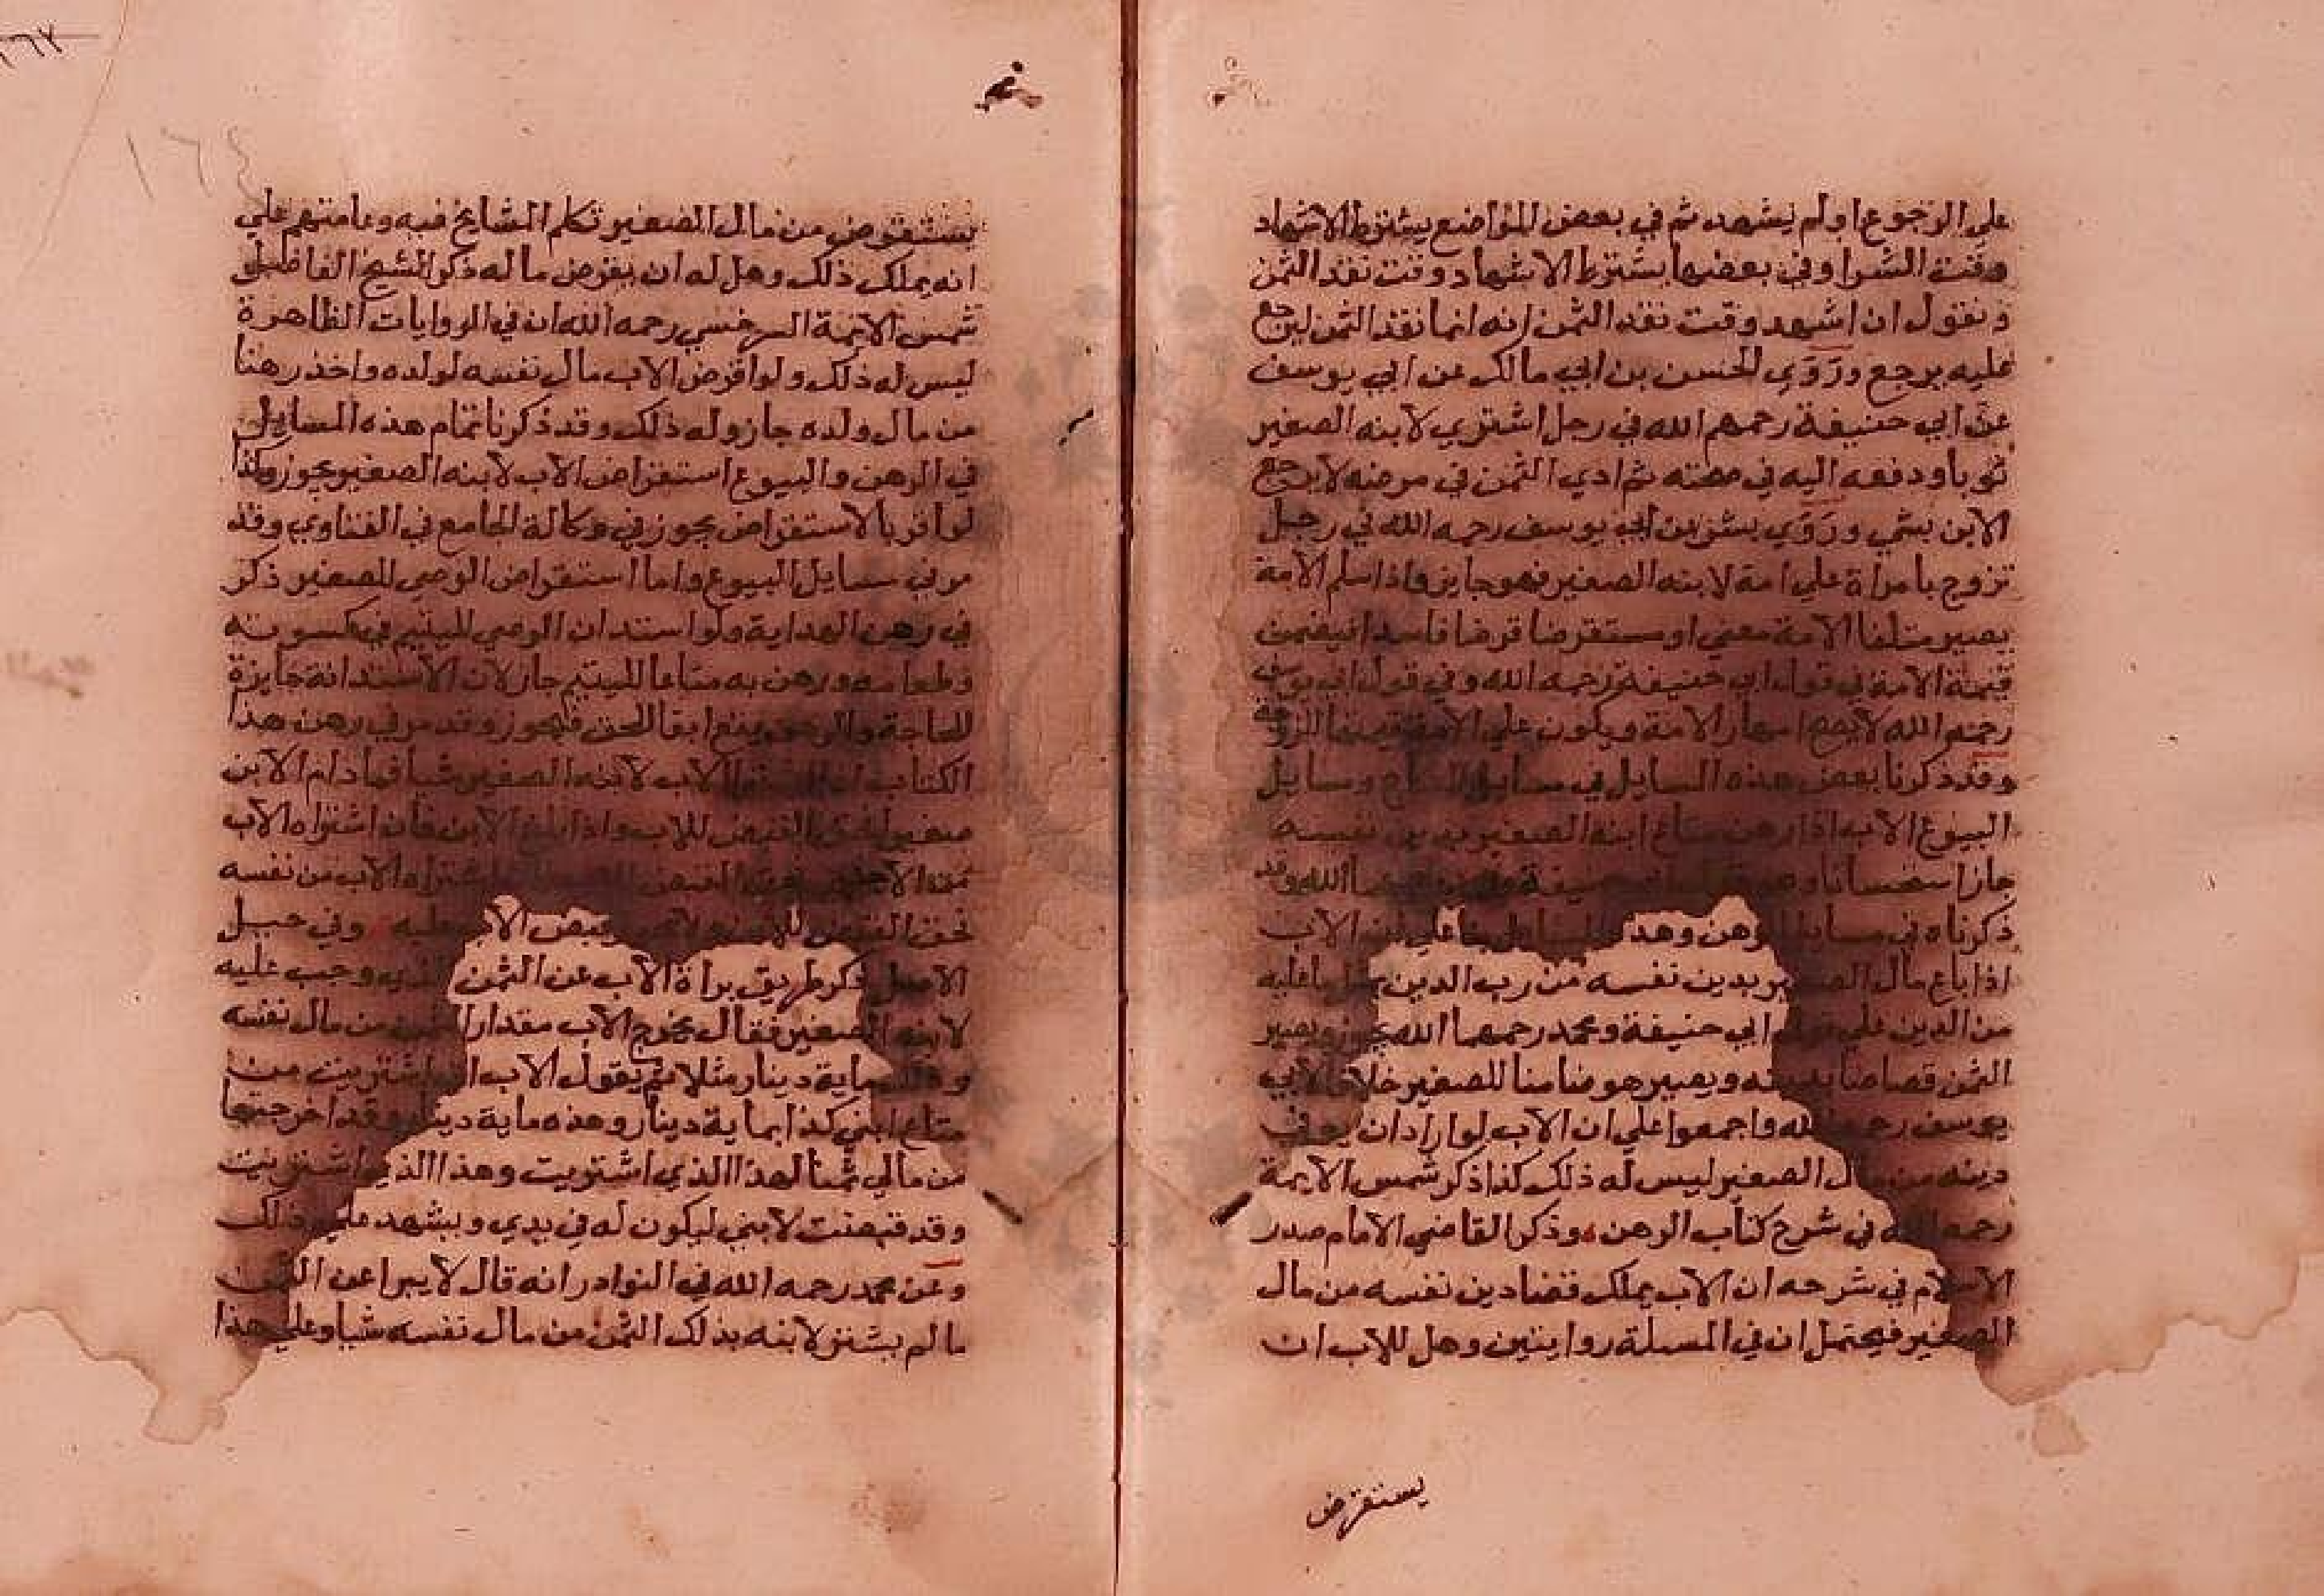 على الرجوع اولم يشهد ثم في بعض المواضع يشترط الاشهاد
وقت الشرا وفي بعضها يشترط الاشهاد وقت نقد الثمن
ونقول ان اشهد وقت نقد الثمن انه انما نقد الثمن ليرجع
عليه يرجع وروي الحسن بن ابي مالك عن ابي يوسف
عن ابي حنيفة رحمهم الله في رجل اشتري لابنه الصغير
ثوبا ودفعه اليه في صحته ثم ادي الثمن في مرضه لا يرجع
الابن بشي وروي بشر عن ابي يوسف رحمه الله في رجل
تزوج بامراة علي امة لابنه الصغير فهو جايز واذا سلم الامة
يصير متلفا الامة معني او مستقرضا قرضا فاسدا فيضمن
قيمة الامة في قول ابي حنيفة رحمه الله وفي قول ابي يوسف
رحمه الله لا يصح امهار الامة ويكون علي الاب قيمتها للزوجة
وقد ذكرنا بعض هذه المسايل في مسايل النكاح ومسايل
البيوع الاب اذا رهن متاع ابنه الصغير بدين نفسه
جاز استحسانا وهو قول ابي حنيفة الله وقد
ذكرناه في مسايل الرهن وهذا علي ان الاب
اذا باع مال الصغير بدين نفسه من رب الدين بمثل ما عليه
من الدين علي قول ابي حنيفة ومحمد رحمهما الله يجوز ويصير
الثمن قصاصا بدينه ويصير هو ضامنا للصغير خلافا لابي
يوسف رحمه الله واجمعوا علي ان الاب لو اراد ان يوفي
دينه من مال الصغير ليس له ذلك كذا ذكر شمس الايمة
رحمه الله في شرح كتاب الرهن وذكر القاضي الامام صدر
الاسلام في شرحه ان الاب يملك قضا دين نفسه من مال
الصغير فيحتمل ان في المسلة روايتين وهل للاب ان
يستقرض
١٦٤
يستقرض من مال الصغير تكلم المشايخ فيه وعامتهم علي
انه يملك ذلك وهل له ان يقرض ماله ذكر الشيخ
شمس الايمة السرخسي رحمه الله ان في الروايات الظاهرة
ليس له ذلك ولو اقرض الاب مال نفسه لولده واخذ رهنا
من مال ولده جاز وله ذلك وقد ذكرنا تمام هذه المسايل
في الرهن والبيوع استقراض الاب لابنه الصغير يجوز وكذا
لو اقر بالاستقراض يجوز في وكالة الجامع في الفتاوي وقد
مر في مسايل البيوع واما استقراض الوصي للصغير ذكر
في رهن الهداية ولو استدان الوصي لليتيم في كسوته
وطعامه ورهن به متاعا لليتيم جاز لان الاستدانة جايزة
للحاجة والرهن يقع ايفا للحق فيجوز وقد مر في رهن هذا
الكتاب ان الاب لابنه الصغير شيا فما دام الابن
صغيرا فحق القبض للاب واذا بلغ الابن فان اشتراه الاب
من الاب من نفسه
فحق القبض للابن قبض الاب عليه وفي حيل
الاصل ذكر طريق براة الاب عن الثمن الذي وجب عليه
لابنه الصغير فقال يخرج الاب مقدار الثمن من مال نفسه
وذلك ماية دينار مثلا ثم يقول الاب اشتريت من
متاع ابني كذا بماية دينار وهذه ماية دينار وقد اخرجتها
من مالي ثمنا لهذا الذي اشتريت وهذا الذي اشتريت
وقد قبضت لابني ليكون له في يدي ويشهد علي ذلك
وعن محمد رحمه الله في النوادر انه قال لا يبرا عن الثمن
ما لم يشتر لابنه بذلك الثمن من مال نفسه شيا وعلي هذا